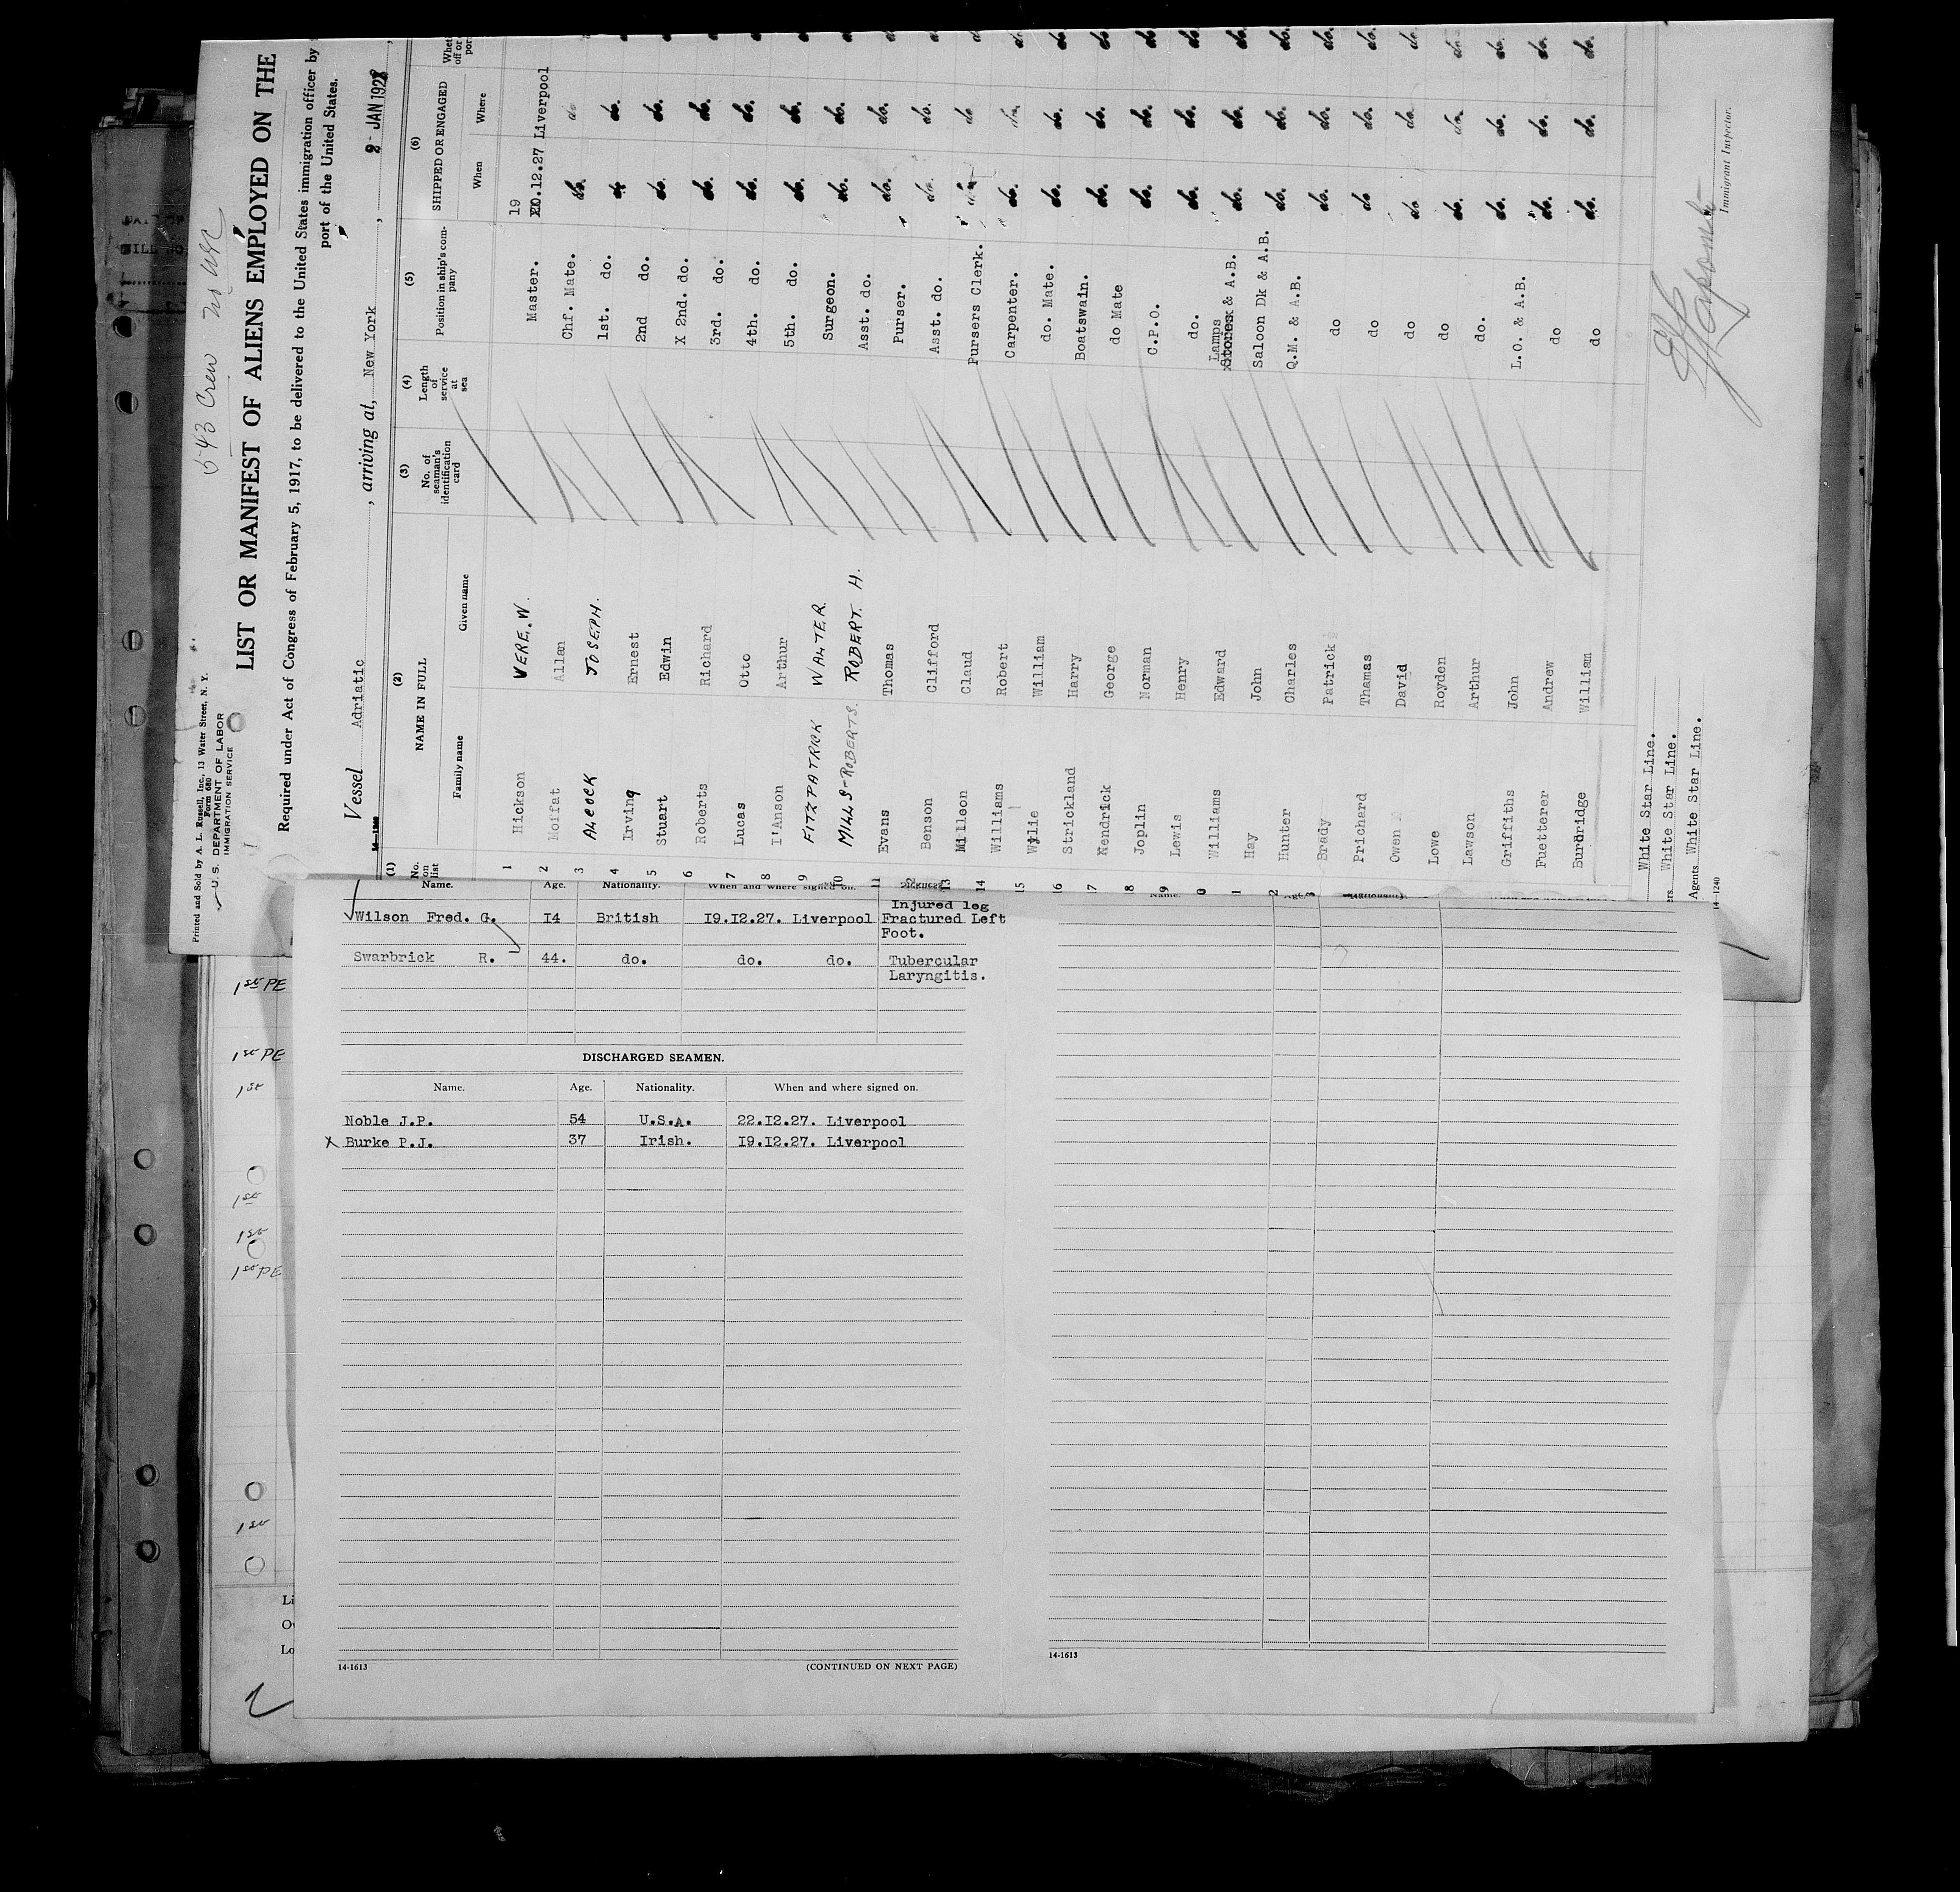 543 Crew
Printed and Sold by A. L. Russell, Inc., 13 Water Street, N. Y.
Form 680
U. S. DEPARTMENT OF LABOR
IMMIGRATION SERVICE
LIST OR MANIFEST OF ALIENS EMPLOYED ON THE
Required under Act of Congress of February 5, 1917, to be delivered to the United States immigration officer by
port of the United States.
Vessel Adriatic, arriving at, New York, 2- JAN 1928,
(1) (2) (3) (4) (5) (6)
No. on list NAME IN FULL No. of seaman's identification card Length of service at sea Position in ship's company SHIPPED OR ENGAGED
Family name Given name When Where
19
1 Hickson VERE. W. Master. 20.12.27 Liverpool
2 Moffat Allan Chf. Mate. do. do
3 ALCOCK JOSEPH. 1st. do. do. do.
4 Irving Ernest 2nd do. do. do.
5 Stuart Edwin X 2nd. do. do. do.
6 Roberts Richard 3rd. do. do. do.
7 Lucas Otto 4th. do. do. do.
8 I'Anson Arthur 5th. do. do. do.
9 FITZPATRICK WALTER Surgeon. do. do.
10 MILLS-ROBERTS. ROBERT H. Asst. do. do. do.
11 Evans Thomas Purser. do. do.
12 Benson Clifford Asst. do. do. do.
13 Millson Claud Pursers Clerk. do.
14 Williams Robert Carpenter. do. do.
15 Wylie William do. Mate. do. do.
16 Strickland Harry Boatswain. do. do.
17 Kendrick George do Mate do. do.
8 Joplin Norman C.P.O. do. do.
9 Lewis Henry do. do. do.
0 Williams Edward Lamps & A.B. do. do.
1 Hay John Saloon Dk & A.B. do. do.
2 Hunter Charles Q.M. & A.B. do. do.
3 Brady Patrick do do do.
Prichard Thamas do do do.
Owen David do do. do.
Lowe Royden do do. do.
Lawson Arthur do. do. do.
Griffiths John L.O. & A.B. do. do.
Fuetterer Andrew do do. do.
Burbridge William do
White Star Line.
White Star Line.
Agents White Star Line.
14-1240
Immigrant Inspector.
Name. Age. Nationality. When and where signed on.
Wilson Fred. G. 14 British 19.12.27. Liverpool Injured leg
Fractured Left
Foot.
Swarbrick R. 44. do. do. do. Tubercular
Laryngitis.
DISCHARGED SEAMEN.
Name. Age. Nationality. When and where signed on.
Noble J.P. 54 U.S.A. 22.12.27. Liverpool
X Burke P.J. 37 Irish. 19.12.27. Liverpool
14-1613 (CONTINUED ON NEXT PAGE)
14-1613